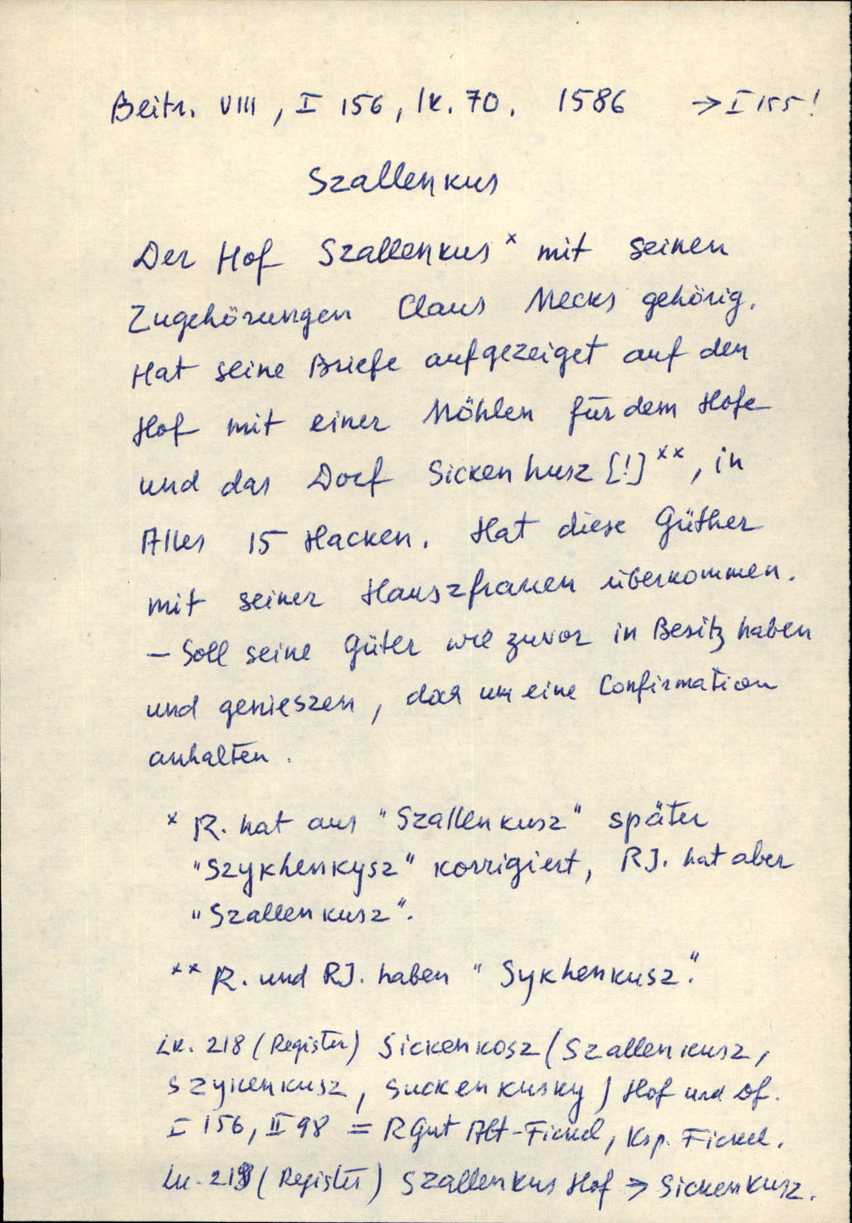 Beitr. VIII, I 156, lk. 70. 1586 → I 155!
Szallenkus
Der Hof Szallenkus* mit seinen
Zugehörungen Claus Mecks gehörig.
Hat seine Briefe aufgezeiget auf den
Hof mit einer Möhlen für dem Hofe
und das Dorf Sickenhusz [!]**, in
Alles 15 Hacken. Hat diese Güther
mit seiner Hauszfrauen überkommen.
— Soll seine Güter wie zuvor in Besitz haben
und genieszen, das um eine Confirmation
anhalten.
* R. hat aus "Szallenkusz" später
"Szykhenkysz" korrigiert, RJ. hat aber
"Szallenkusz".
** R. und RJ. haben "Sykhenkusz".
Lk. 218 (Register) Sickenkosz (Szallenkusz,
Szykenkusz, Suckenkusky) Hof und Df.
I 156, II 98 = RGut Alt-Fickel, Ksp. Fickel.
Lk. 219 (Register) Szallenkus Hof → Sickenkusz.